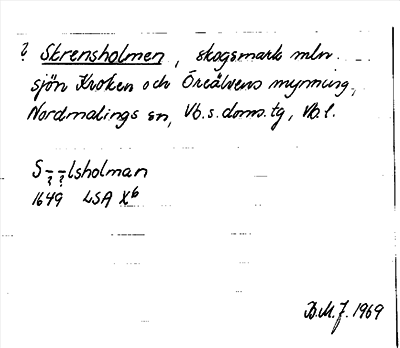 ? Strensholmen, skogsmark mln.
sjön Kroken och Öreälvens mynning,
Nordmalings sn, Vb.s.doms.tg, Vb.l.
S-?-?lsholman
1649 LSA X6
B.M.J. 1969